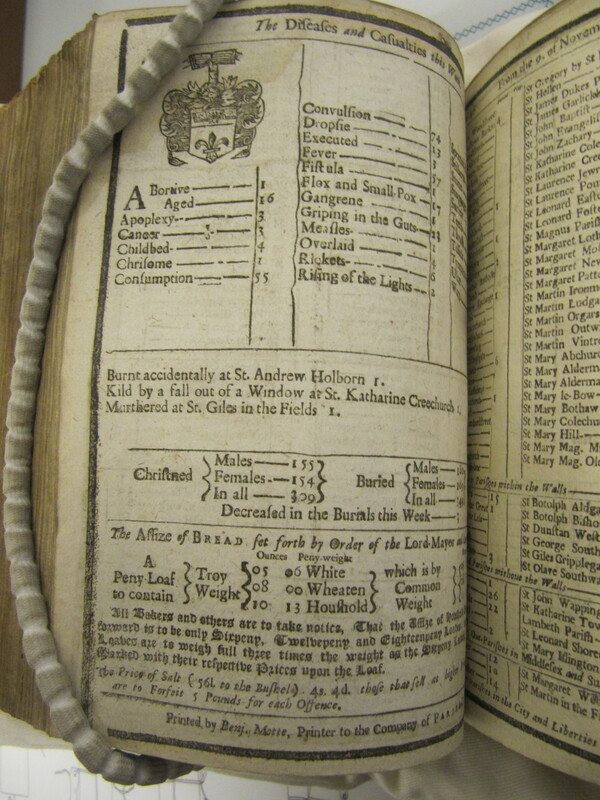 The Diseases and Casualties this
Abortive 1
Aged 16
Apoplexy 3
Cancer 3
Childbed 4
Chrisome 1
Consumption 55
Convulsion 74
Dropsie
Executed
Fever 57
Fistula 1
Flox and Small-Pox 17
Gangrene
Griping in the Guts
Measles
Overlaid
Rickets 6
Rising of the Lights 2
Burnt accidentally at St. Andrew Holborn 1.
Kild by a fall out of a Window at St. Katharine Creechurch
Murthered at St. Giles in the Fields 1.
Christned Males 155 Females 154 In all 309
Buried Males Females In all
Decreased in the Burials this Week
The Assize of BREAD set forth by Order of the Lord-Mayor
Ounces Peny-weight
A Peny Loaf to contain Troy Weight 05 06 White
08 00 Wheaten
10 13 Houshold
which is by Common Weight
All Bakers and others are to take notice, That the Assize of
forward is to be only Sixpeny, Twelvepeny and Eighteenpeny
Loaves are to weigh full three times the weight as the Sixpeny
Marked with their respective Prices upon the Loaf.
The Price of Salt (56l. to the Bushel) 4s. 4d. those that sell at higher
are to Forfeit 5 Pounds for each Offence.
Printed by Benj. Motte, Printer to the Company of
From the 9. of Novem
St Gregory by St
St Hellen
St James Dukes P
St James Garlick
St John Baptist
St John Evangel
St John Zachary
St Katharine Cole
St Katharine Cree
St Laurence Jewr
St Laurence Poun
St Leonard East
St Leonard Fost
St Magnus Parish
St Margaret Loth
St Margaret Mo
St Margaret New
St Margaret Patt
St Martin Ironm
St Martin Ludga
St Martin Orgar
St Martin Outw
St Martin Vintr
St Mary Abchur
St Mary Alderm
St Mary Alderma
St Mary le-Bow
St Mary Bothaw
St Mary Colechu
St Mary Hill
St Mary Mag. M
St Mary Mag. Ol
Parishes within the Walls
St Botolph Aldga
St Botolph Bisho
St Dunstan West
St George South
St Giles Cripplega
St Olave Southwa
Parishes without the Walls
St John Wapping
St Katharine Tow
Lambeth Parish
St Leonard Shore
St Mary Islington
Out-Parishes in Middlesex and Su
St Margaret W
St Martin in the F
in the City and Liberties